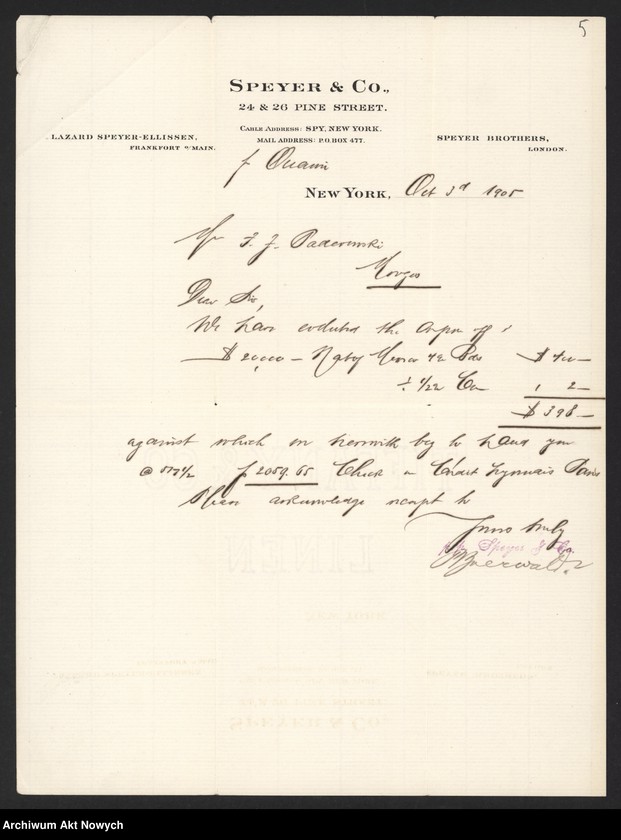 5
SPEYER & CO.,
24 & 26 PINE STREET.
CABLE ADDRESS: SPY, NEW YORK.
MAIL ADDRESS: P.O. BOX 477.
LAZARD SPEYER-ELLISSEN,
FRANKFORT o/MAIN.
SPEYER BROTHERS,
LONDON.
NEW YORK, Oct 3d 1905
Paderewski
Morges
Dear Sir,
We have the coupon off
$ 20,000 – $ 400 –
2 –
$ 398 –
against which we herewith beg to hand you
2059.65 Check on Crédit Lyonnais Paris
Please acknowledge receipt to
Yours truly
Speyer & Co.
LINEN
Archiwum Akt Nowych